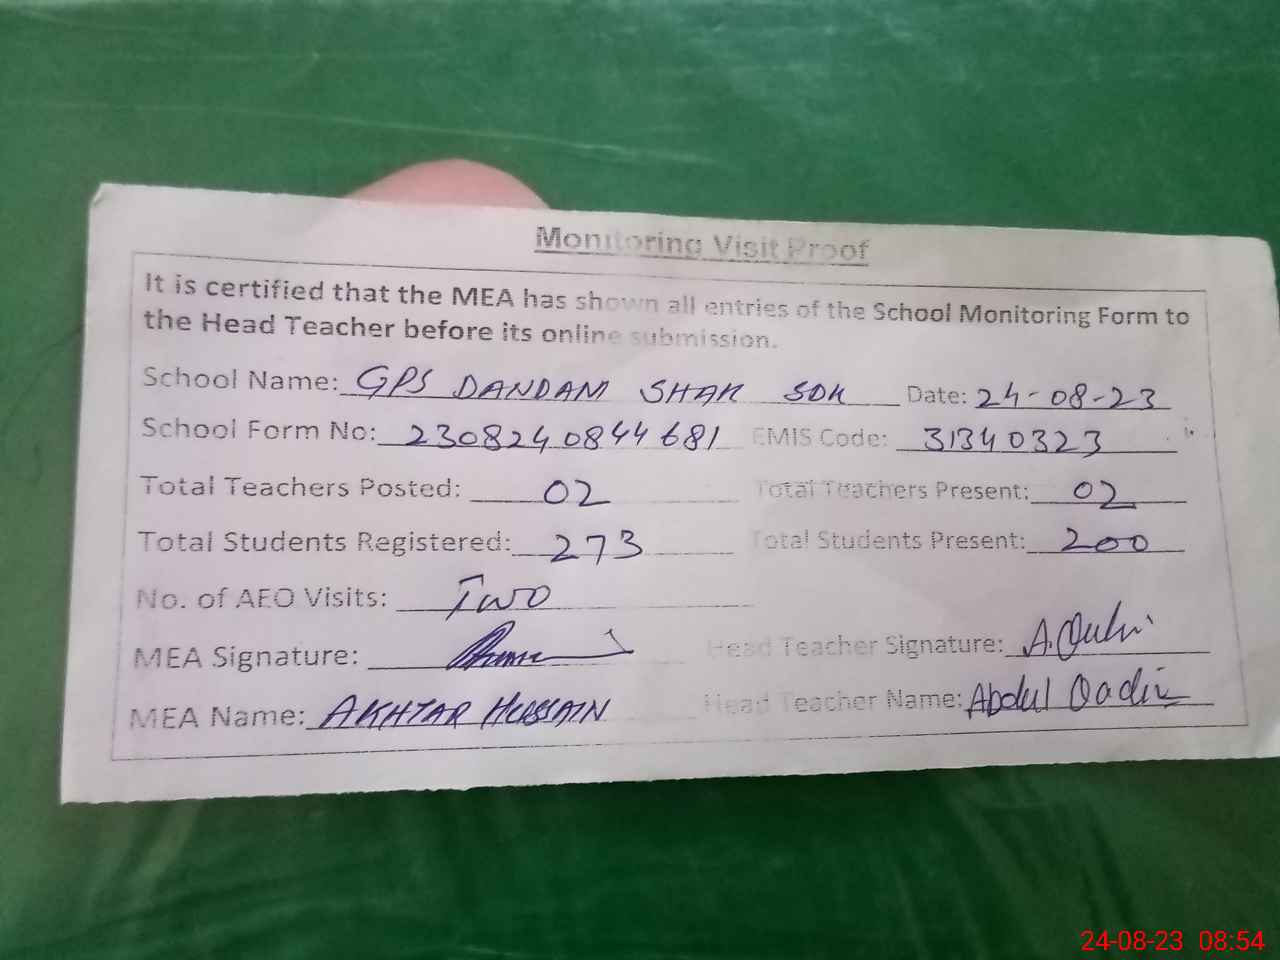 Monitoring Visit Proof
It is certified that the MEA has shown all entries of the School Monitoring Form to
the Head Teacher before its online submission.
School Name: GPS DANDAM SHAH SDK Date: 24-08-23
School Form No: 2308240844681 EMIS Code: 31340323
Total Teachers Posted: 02 Total Teachers Present: 02
Total Students Registered: 273 Total Students Present: 200
No. of AEO Visits: Two
MEA Signature: Head Teacher Signature: A.Qadir
MEA Name: AKHTAR HUSSAIN Head Teacher Name: Abdul Qadir
24-08-23 08:54